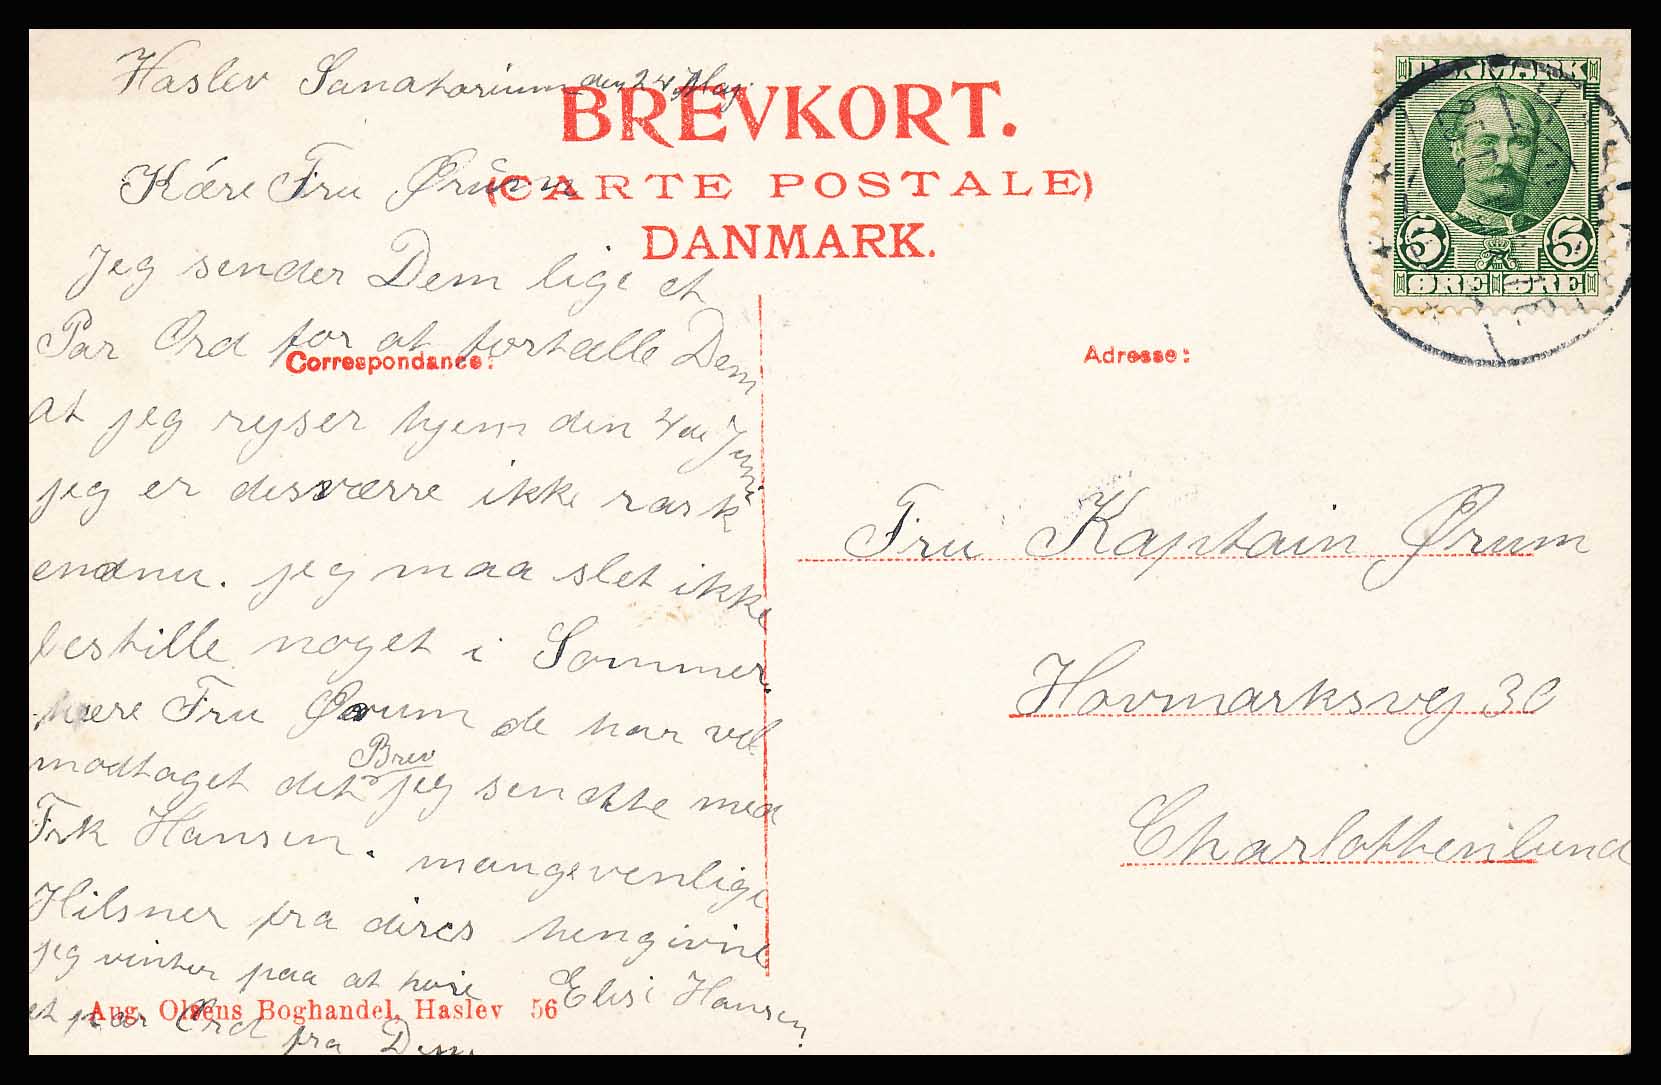 Haslev Sanatorium den 24 Maj.
BREVKORT.
(CARTE POSTALE)
DANMARK.
Kære Fru Ørum
Jeg sender Dem lige et
Par Ord for at fortælle Dem
at jeg ryser hjem den 4de Juni
jeg er desværre ikke rask
endnu. jeg maa slet ikke
bestille noget i Sommer.
kære Fru Ørum de har vel
modtaget det Brev jeg sendte med
Frk Hansen. mange venlige
Hilsner fra deres hengivne
Elise Hansen.
jeg venter paa at høre
et par Ord fra Dem
Correspondance:
Aug. Olsens Boghandel, Haslev 56
DANMARK
5 5
ØRE ØRE
Adresse:
Fru Kaptain Ørum
Hovmarksvej 30
Charlottenlund